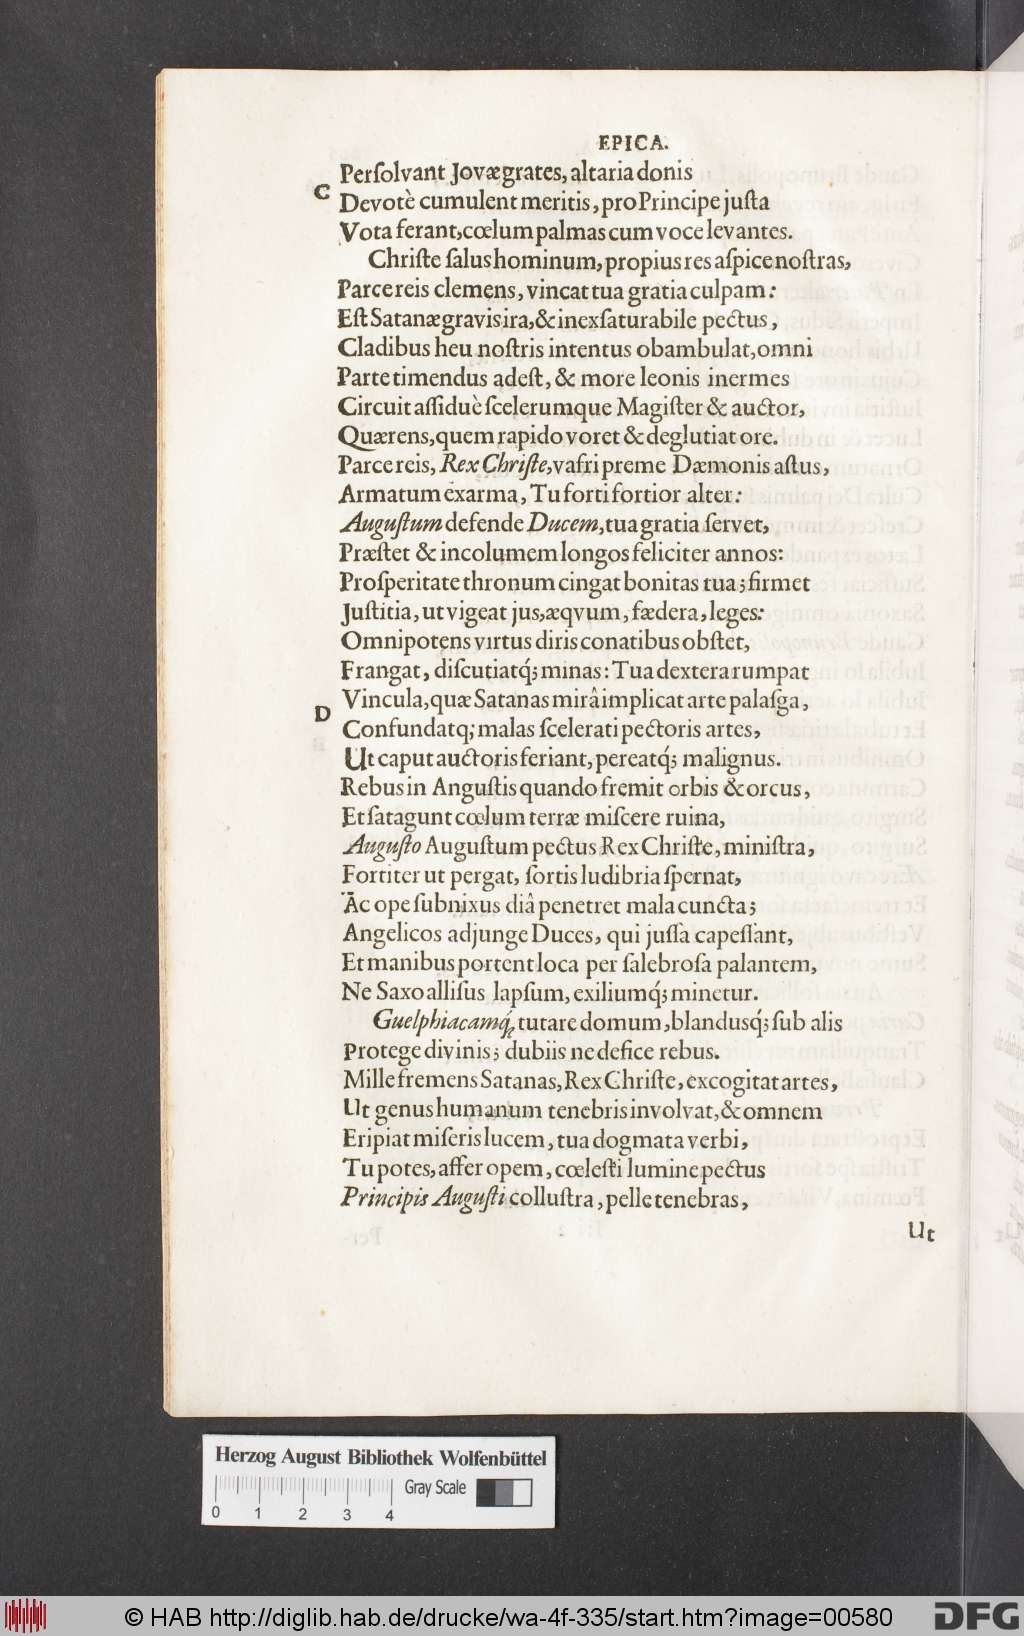 EPICA.
Perſolvant Jovæ grates, altaria donis
C
Devotè cumulent meritis, pro Principe juſta
Vota ferant, cœlum palmas cum voce levantes.
Chriſte ſalus hominum, propius res aſpice noſtras,
Parce reis clemens, vincat tua gratia culpam:
Eſt Satanæ gravis ira, & inexſaturabile pectus,
Cladibus heu noſtris intentus obambulat, omni
Parte timendus adeſt, & more leonis inermes
Circuit aſſiduè ſcelerumque Magiſter & auctor,
Quærens, quem rapido voret & deglutiat ore.
Parce reis, Rex Chriſte, vafri preme Dæmonis aſtus,
Armatum exarma, Tu forti fortior alter:
Auguſtum defende Ducem, tua gratia ſervet,
Præſtet & incolumem longos feliciter annos:
Proſperitate thronum cingat bonitas tua; firmet
Juſtitia, ut vigeat jus, æqvum, fœdera, leges:
Omnipotens virtus diris conatibus obſtet,
Frangat, diſcutiatq́; minas: Tua dextera rumpat
Vincula, quæ Satanas mirâ implicat arte palaſga,
D
Confundatq; malas ſcelerati pectoris artes,
Ut caput auctoris feriant, pereatq́; malignus.
Rebus in Anguſtis quando fremit orbis & orcus,
Et ſatagunt cœlum terræ miſcere ruina,
Auguſto Auguſtum pectus Rex Chriſte, miniſtra,
Fortiter ut pergat, ſortis ludibria ſpernat,
Ac ope ſubnixus diâ penetret mala cuncta;
Angelicos adjunge Duces, qui juſſa capeſſant,
Et manibus portent loca per ſalebroſa palantem,
Ne Saxo alliſus lapſum, exiliumq́; minetur.
Guelphiacamq́; tutare domum, blandusq́; ſub alis
Protege divinis; dubiis ne defice rebus.
Mille fremens Satanas, Rex Chriſte, excogitat artes,
Ut genus humanum tenebris involvat, & omnem
Eripiat miſeris lucem, tua dogmata verbi,
Tu potes, affer opem, cœleſti lumine pectus
Principis Auguſti colluſtra, pelle tenebras,
Ut
Herzog August Bibliothek Wolfenbüttel
Gray Scale
0 1 2 3 4
© HAB http://diglib.hab.de/drucke/wa-4f-335/start.htm?image=00580
DFG